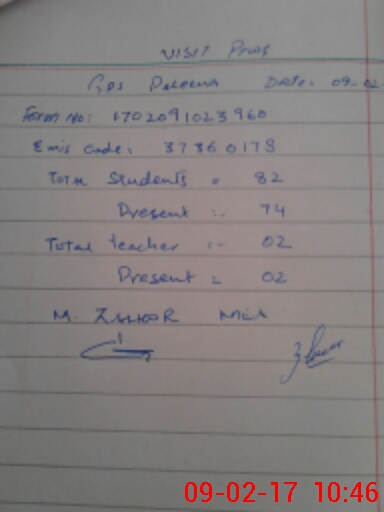 VISIT Proof
GPS Date: 09-02
Form No: 1702091023960
Emis Code: 37360178
Total Students = 82
Present :- 74
Total teacher :- 02
Present = 02
M. ZAHOOR MEA
09-02-17 10:46